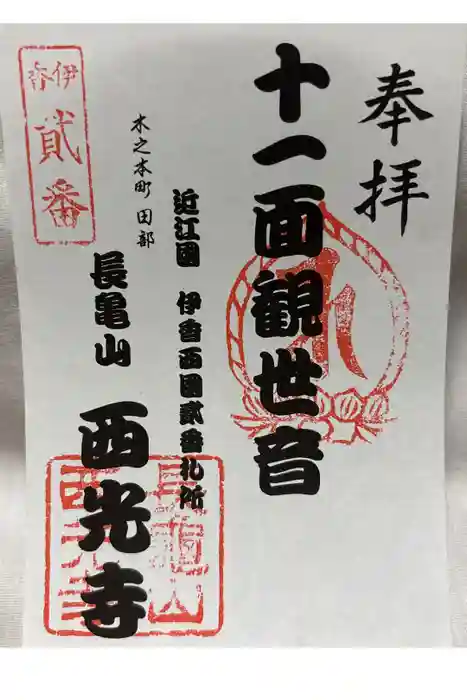 奉拝
十一面観世音
近江國 伊香西国貳番札所
木之本町 田部
長亀山 西光寺
伊香
貳番
長龜山
西光寺